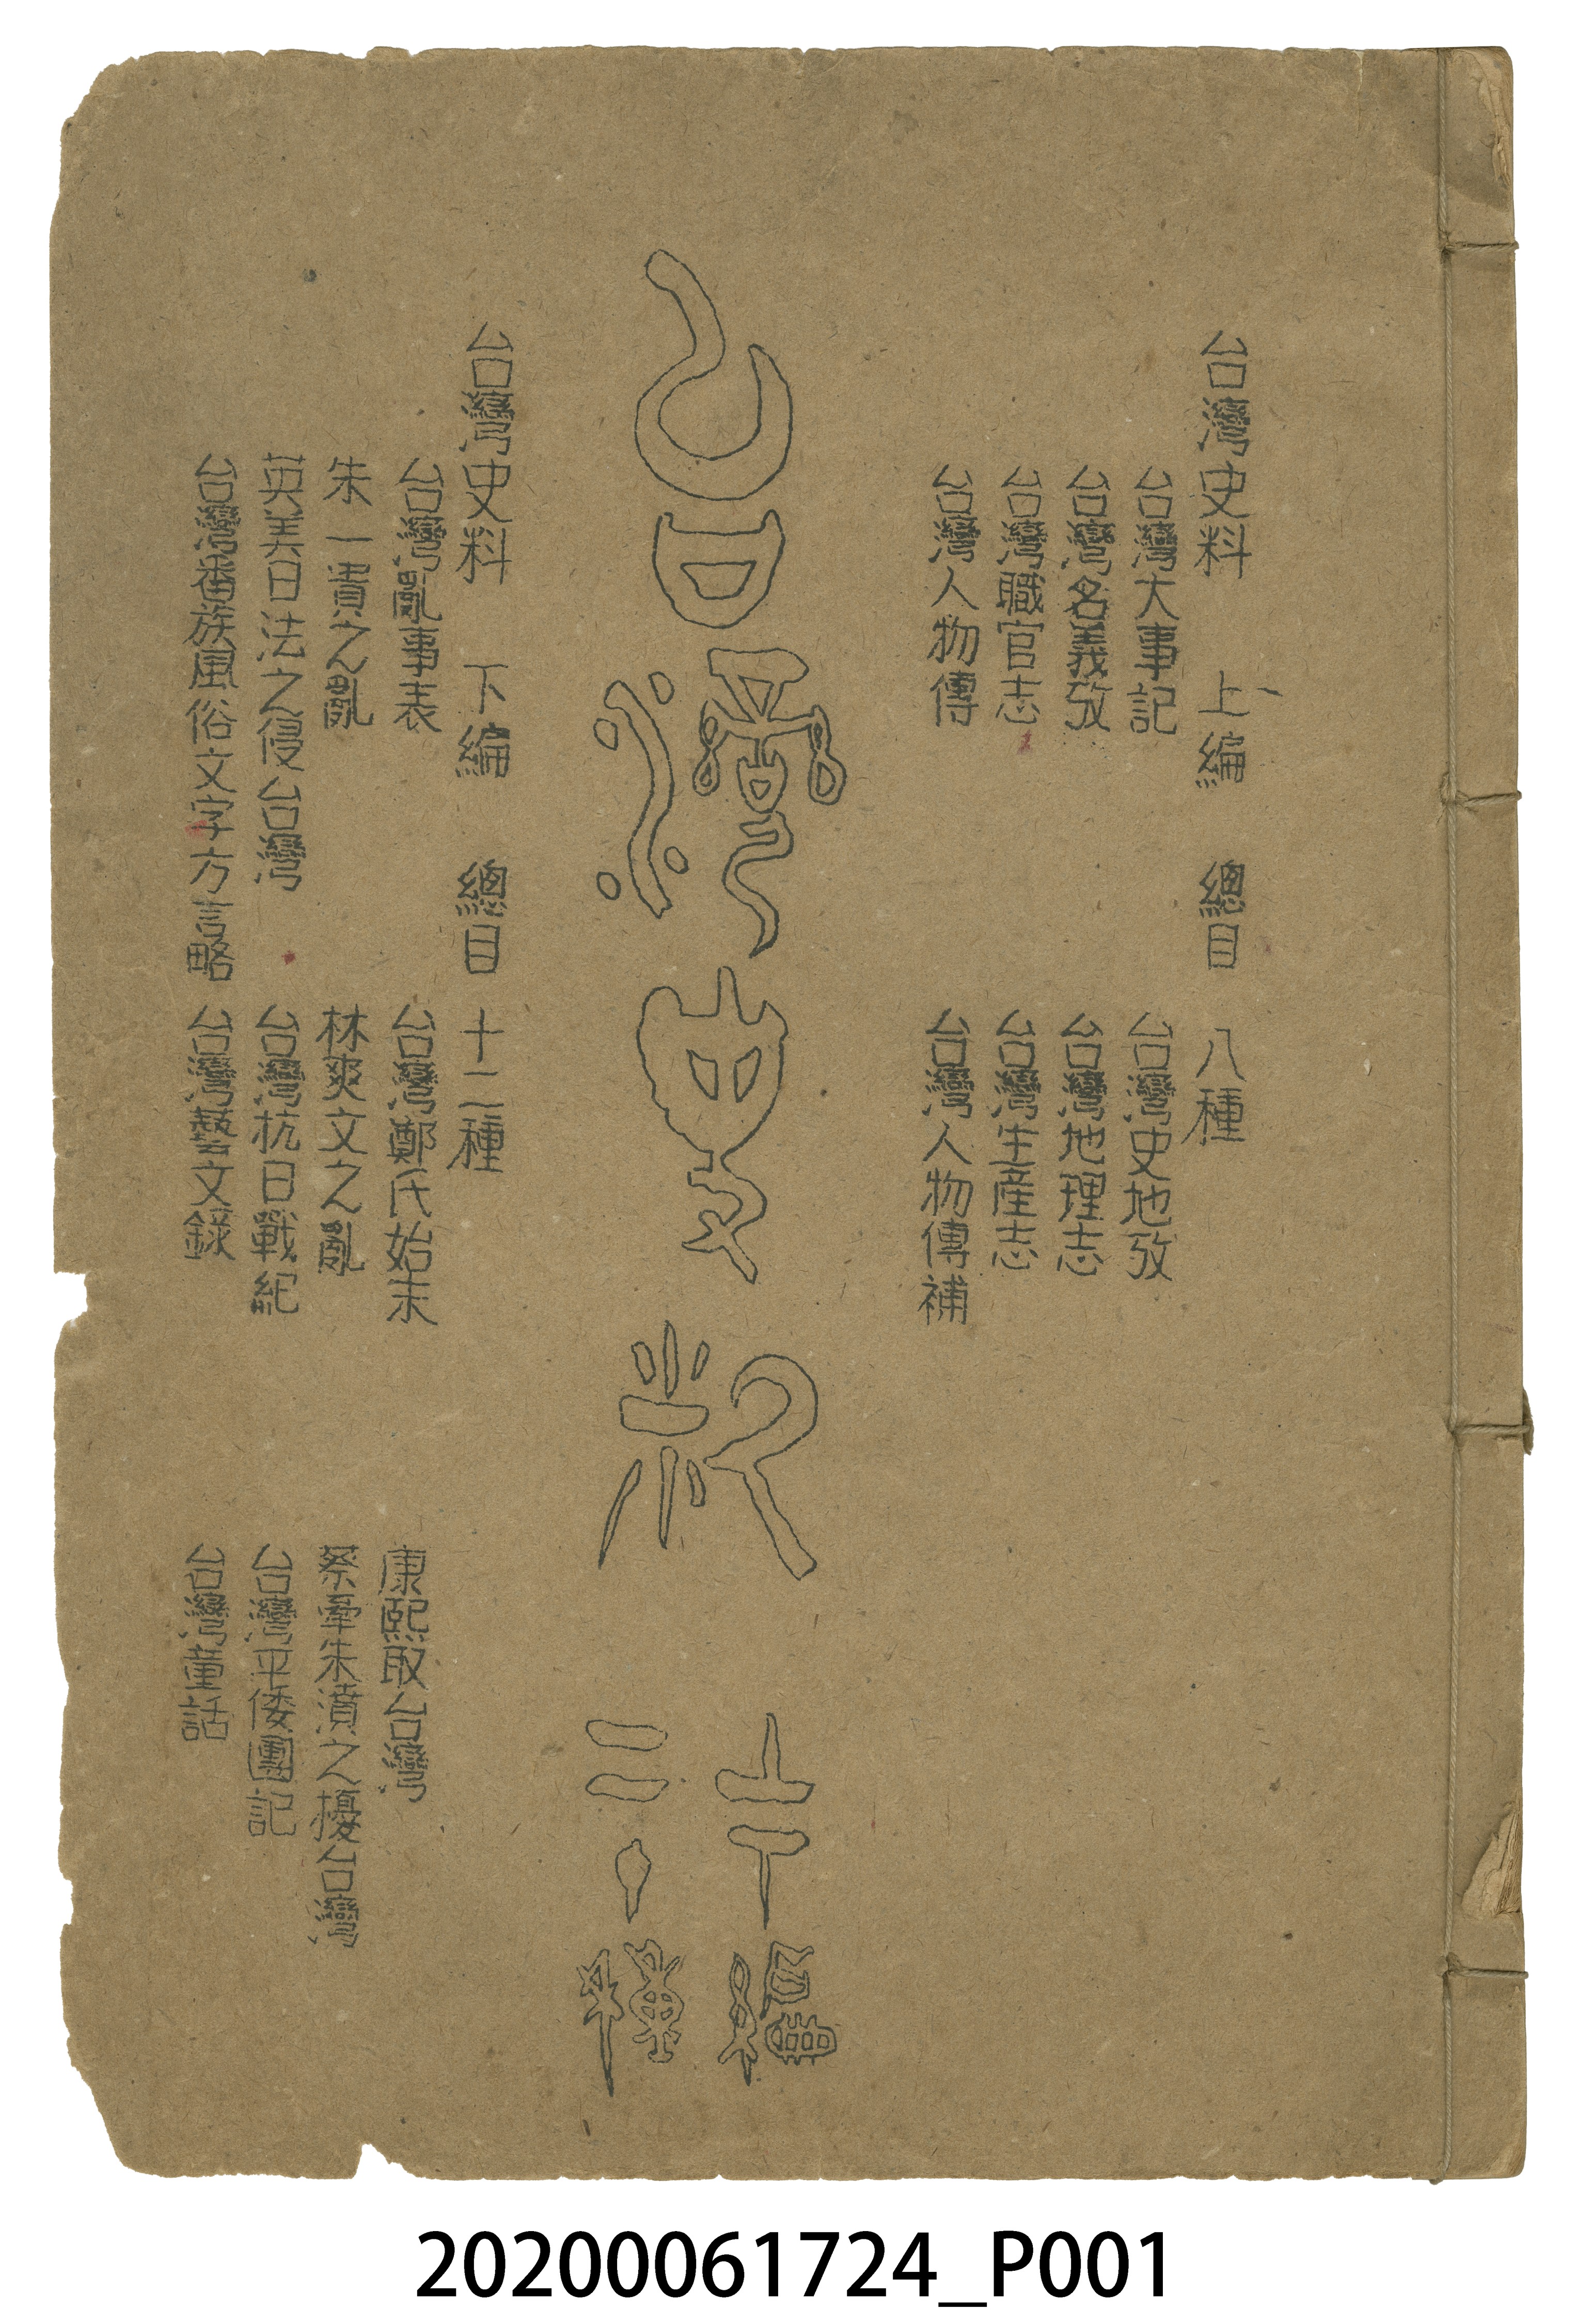 台灣史料　上編　總目　八種
台灣大事記　台灣史地攷
台灣名義攷　台灣地理志
台灣職官志　台灣生產志
台灣人物傳　台灣人物傳補
台灣史料
上下編
二十種
台灣史料　下編　總目　十二種
台灣亂事表　台灣鄭氏始末　康熙取台灣
朱一貴之亂　林爽文之亂　蔡牽朱濆之擾台灣
英美日法之侵台灣　台灣抗日戰紀　台灣平倭圖記
台灣番族風俗文字方言略　台灣藝文錄　台灣童話
20200061724_P001